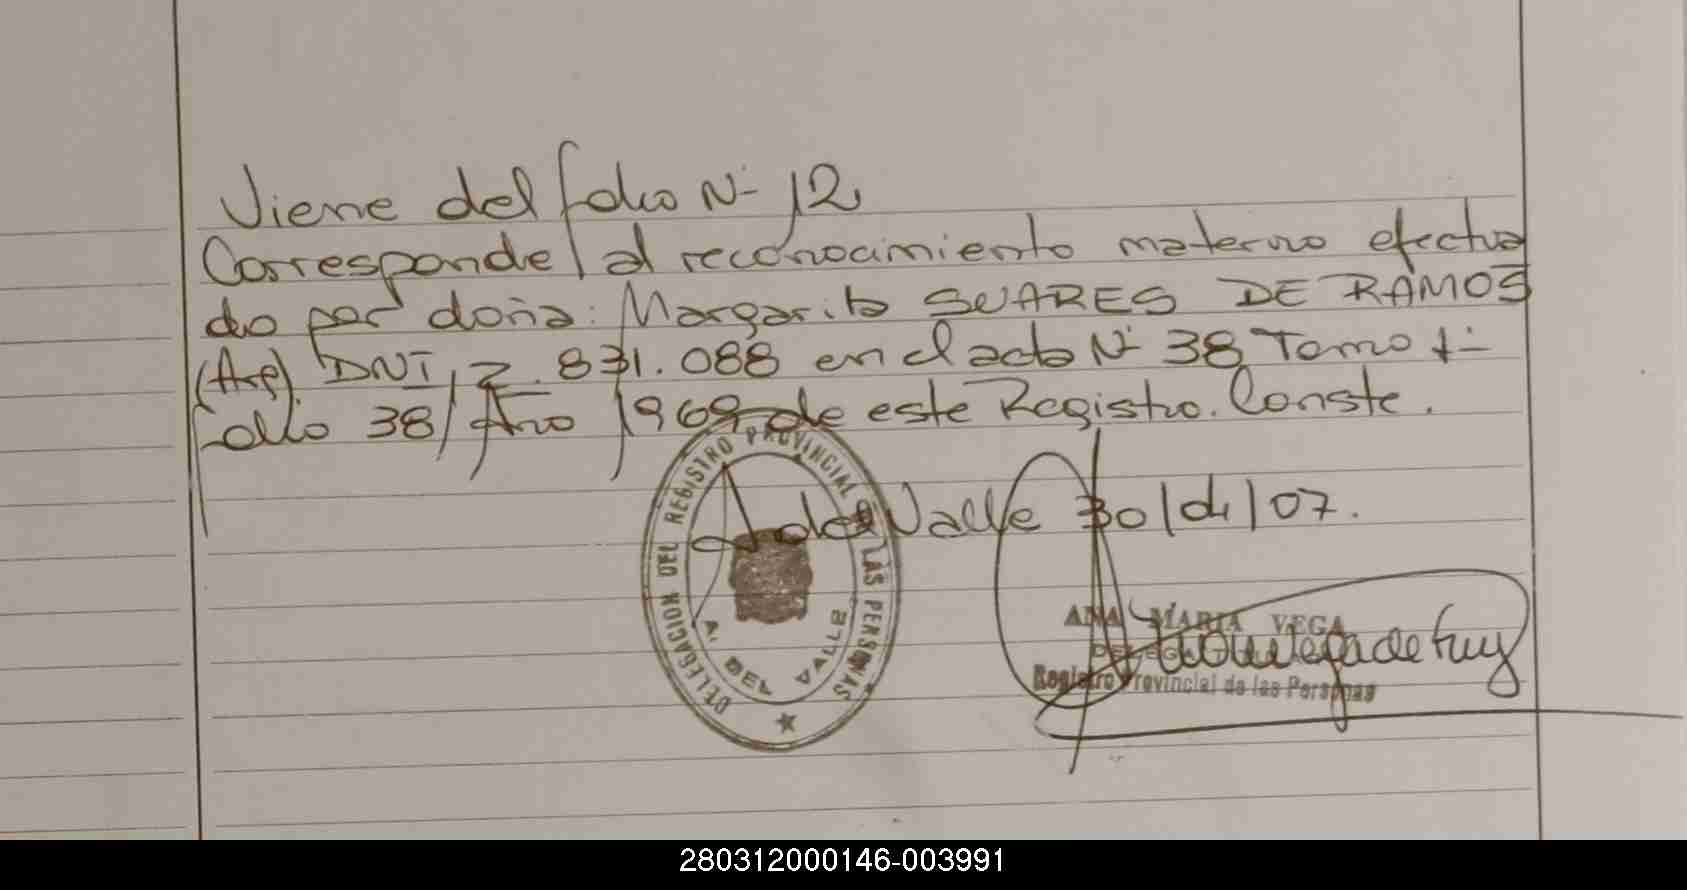 Viene del folio Nº 12
Corresponde al reconocimiento materno efectua
do por doña: Margarita SUARES DE RAMOS
(Arg). DNI. 2.831.088 en el acta Nº 38 Tomo 1º
folio 38 Año 1969 de este Registro. Conste.
A. del Valle 30/01/07.
DELEGACION DEL REGISTRO PROVINCIAL DE LAS PERSONAS
A. DEL VALLE
ANA MARIA VEGA
DELEGADA
Registro Provincial de las Personas
280312000146-003991